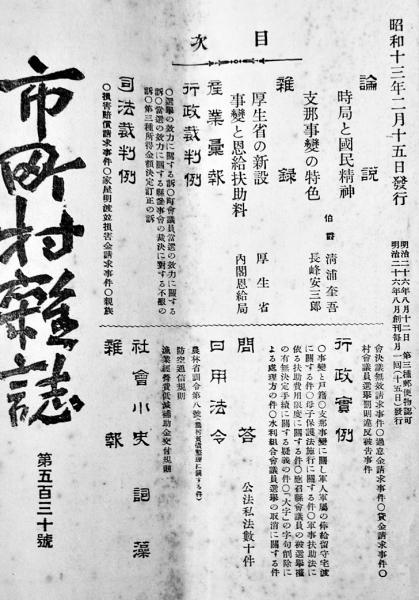 昭和十三年二月十五日發行
明治二十六年八月十二日 第三種郵便物認可
明治二十六年八月創刊每月一回(十五日)發行
目次
論說
時局と國民精神 伯爵 淸浦奎吾
支那事變の特色 長峰安三郞
雜錄
厚生省の新設 厚生省
事變と恩給扶助料 內閣恩給局
產業彙報
行政裁判例
○選擧の效力に關する訴○町會議員當選の效力に關する
訴○當選の效力に關する縣參事會の裁決に對する不服の
訴○第三種所得金額決定訂正の訴
司法裁判例
○損害賠償請求事件○家屋明渡並損害金請求事件○親族
會決議無效請求事件○過怠金請求事件○貸金請求事件○
村會議員選擧罰則違反被告事件
行政實例
○事變と戶籍○支那事變に關し軍人軍屬の俸給留守宅渡
に關する件○母子保護法施行に關する件○軍事扶助法に
依る扶助費用限度に關する件○應召縣會議員の被選擧權
の有無決定手續に關する疑義の件○「大字」の字句削除に
よる處理方の件○水利組合會議員選擧の取消に關する件
問答 公法私法數十件
日用法令
農林省訓令第八號
防空通信規則
漁業經營費低減補助金交付規則
社會小史 詞藻
雜報
市町村雜誌
第五百三十號